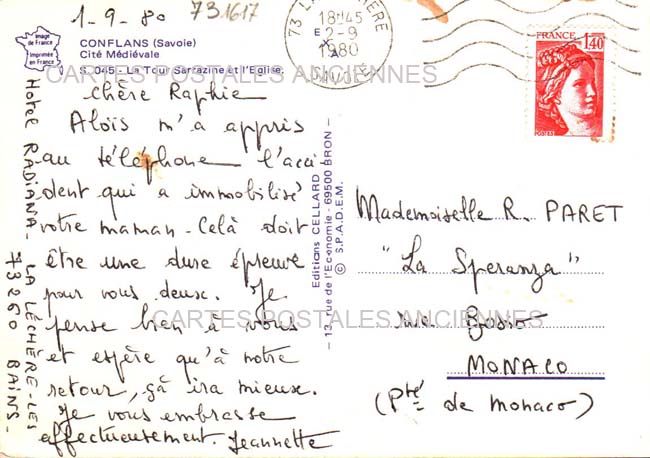 1-9-80
731617
Image de France
Imprimée en France
CONFLANS (Savoie)
Cité Médiévale
S. 045 - La Tour Sarrazine et l'Eglise.
CARTES POSTALES ANCIENNES
Chère Raphie
Aloïs m'a appris
au téléphone l'acci
dent qui a immobilisé
votre maman - Celà doit
être une dure épreuve
pour vous deux. Je
pense bien à vous
et espère qu'à notre
retour, çà ira mieux.
Je vous embrasse
affectueusement. Jeannette
Hotel RADIANA - LA LÉCHÈRE-LES
BAINS -
73260
Editions CELLARD
- 13, rue de l'Economie - 69500 BRON -
© S.P.A.D.E.M.
73 LA LECHERE
18H45
2-9
1980
SAVOIE
FRANCE
1,40
POSTES
Mademoiselle R. PARET
"La Speranza"
rue Bosio
CARTES POSTALES ANCIENNES
MONACO
(Pté de Monaco)